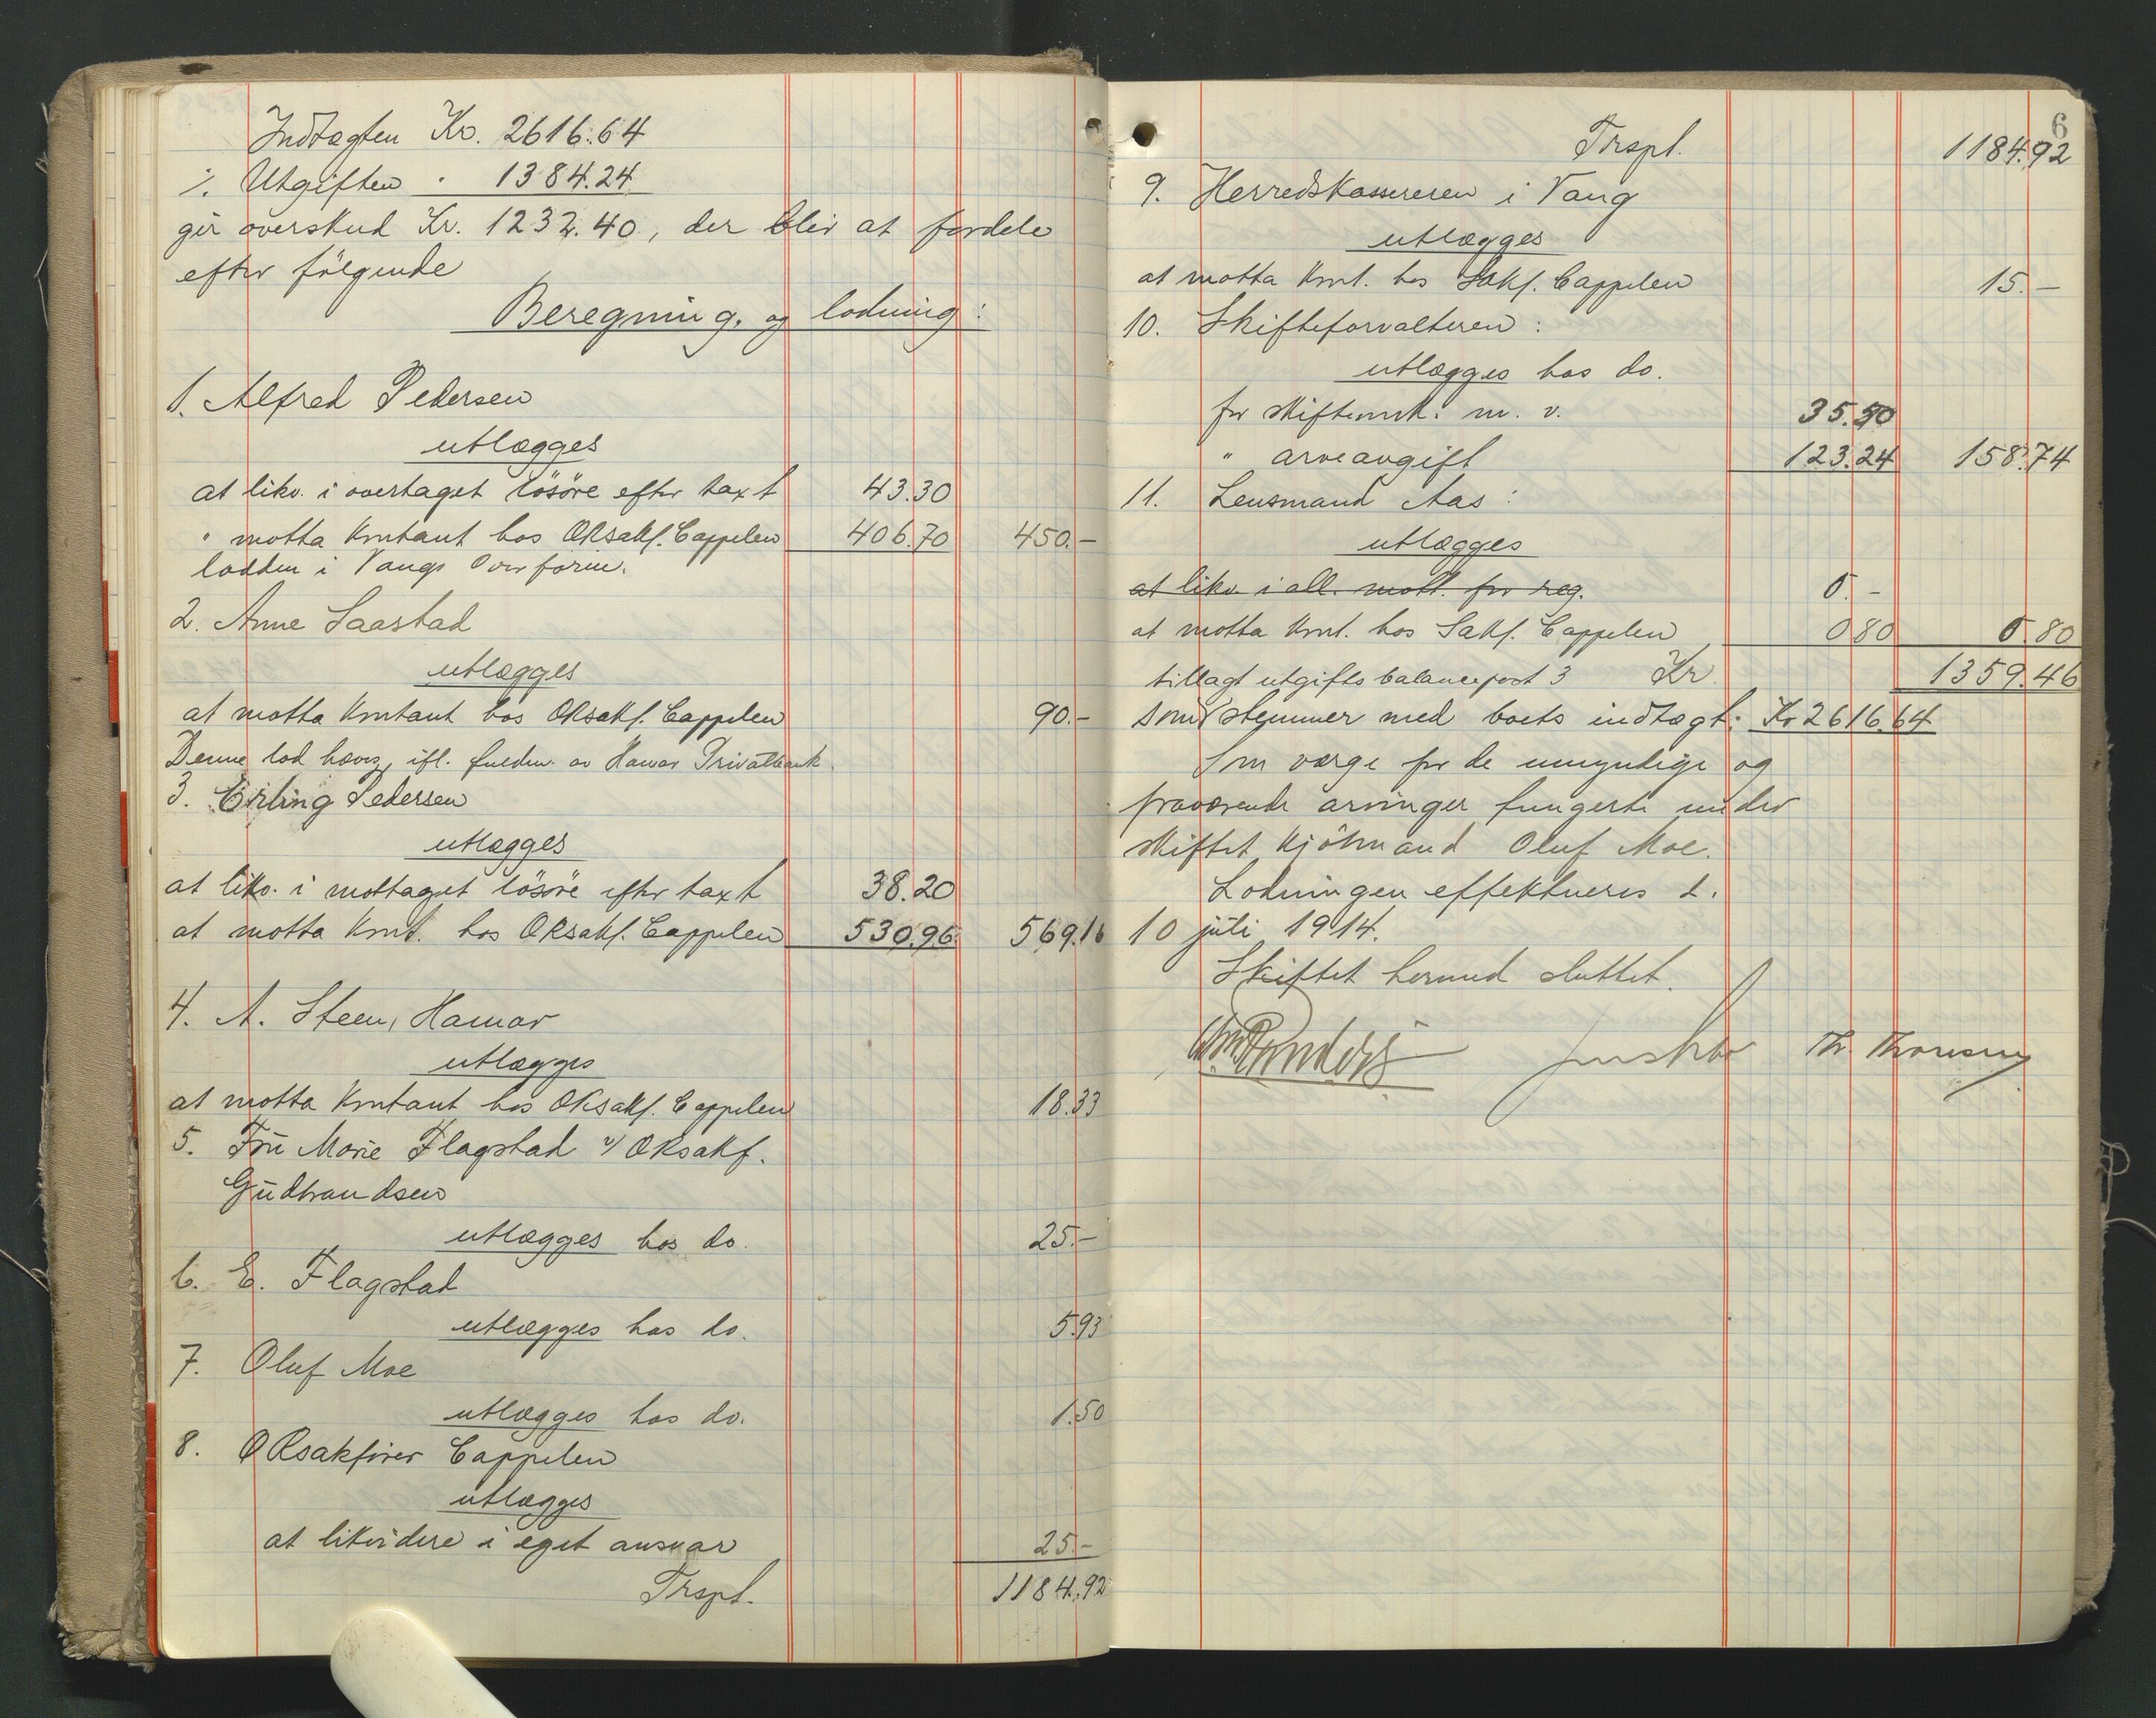 Indtægten Kr. 2616.64
÷ Utgiften " 1384.24
gir overskud Kr. 1232.40, der blir at fordele
efter følgende
Beregning og lodning:
1. Alfred Pedersen
utlægges
at likv. i overtaget løsøre efter taxt 43.30
" motta kontant hos ORsakf. Cappelen 406.70 450.-
lodden i Vangs Overform.
2. Anne Saastad
utlægges
at motta kontant hos ORsakf. Cappelen 90.-
Denne lod hæves ifl. fuldm. av Hamar Privatbank.
3. Erling Pedersen
utlægges
at likv. i mottaget løsøre efter taxt 38.20
at motta kont. hos ORsakf. Cappelen 530.96 569.16
4. A. Steen, Hamar
utlægges
at motta kontant hos ORsakf. Cappelen 18.33
5. Fru Marie Flagstad v/ ORsakf.
Gudbrandsen
utlægges hos do. 25.-
6. E. Flagstad
utlægges hos do. 5.93
7. Oluf Moe
utlægges hos do. 1.50
8. ORsakfører Cappelen
utlægges
at likvidere i eget ansvar 25.-
Trspt. 1184.92
6
Trspt. 1184.92
9. Herredskassereren i Vang
utlægges
at motta kont. hos Sakf. Cappelen 15.-
10. Skifteforvalteren:
utlægges hos do.
for skifteomk. m. v. 35.50
" arveavgift 123.24 158.74
11. Lensmand Aas:
utlægges
at likv. i all. mott. for reg. 0.-
at motta kont. hos Sakf. Cappelen 0 80 0.80
tillagt utgifts balancepost 3 Kr. 1359.46
som stemmer med boets indtægt: Kr 2616.64
Som værge for de umyndige og
fraværende arvinger fungerte under
skiftet kjøbmand Oluf Moe.
Lodningen effektueres d.
10 juli 1914.
Skiftet hermed sluttet.